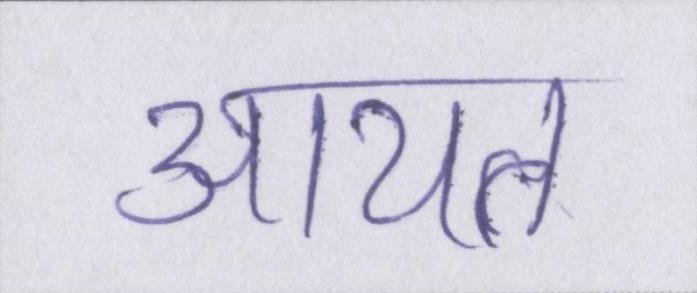 आयत